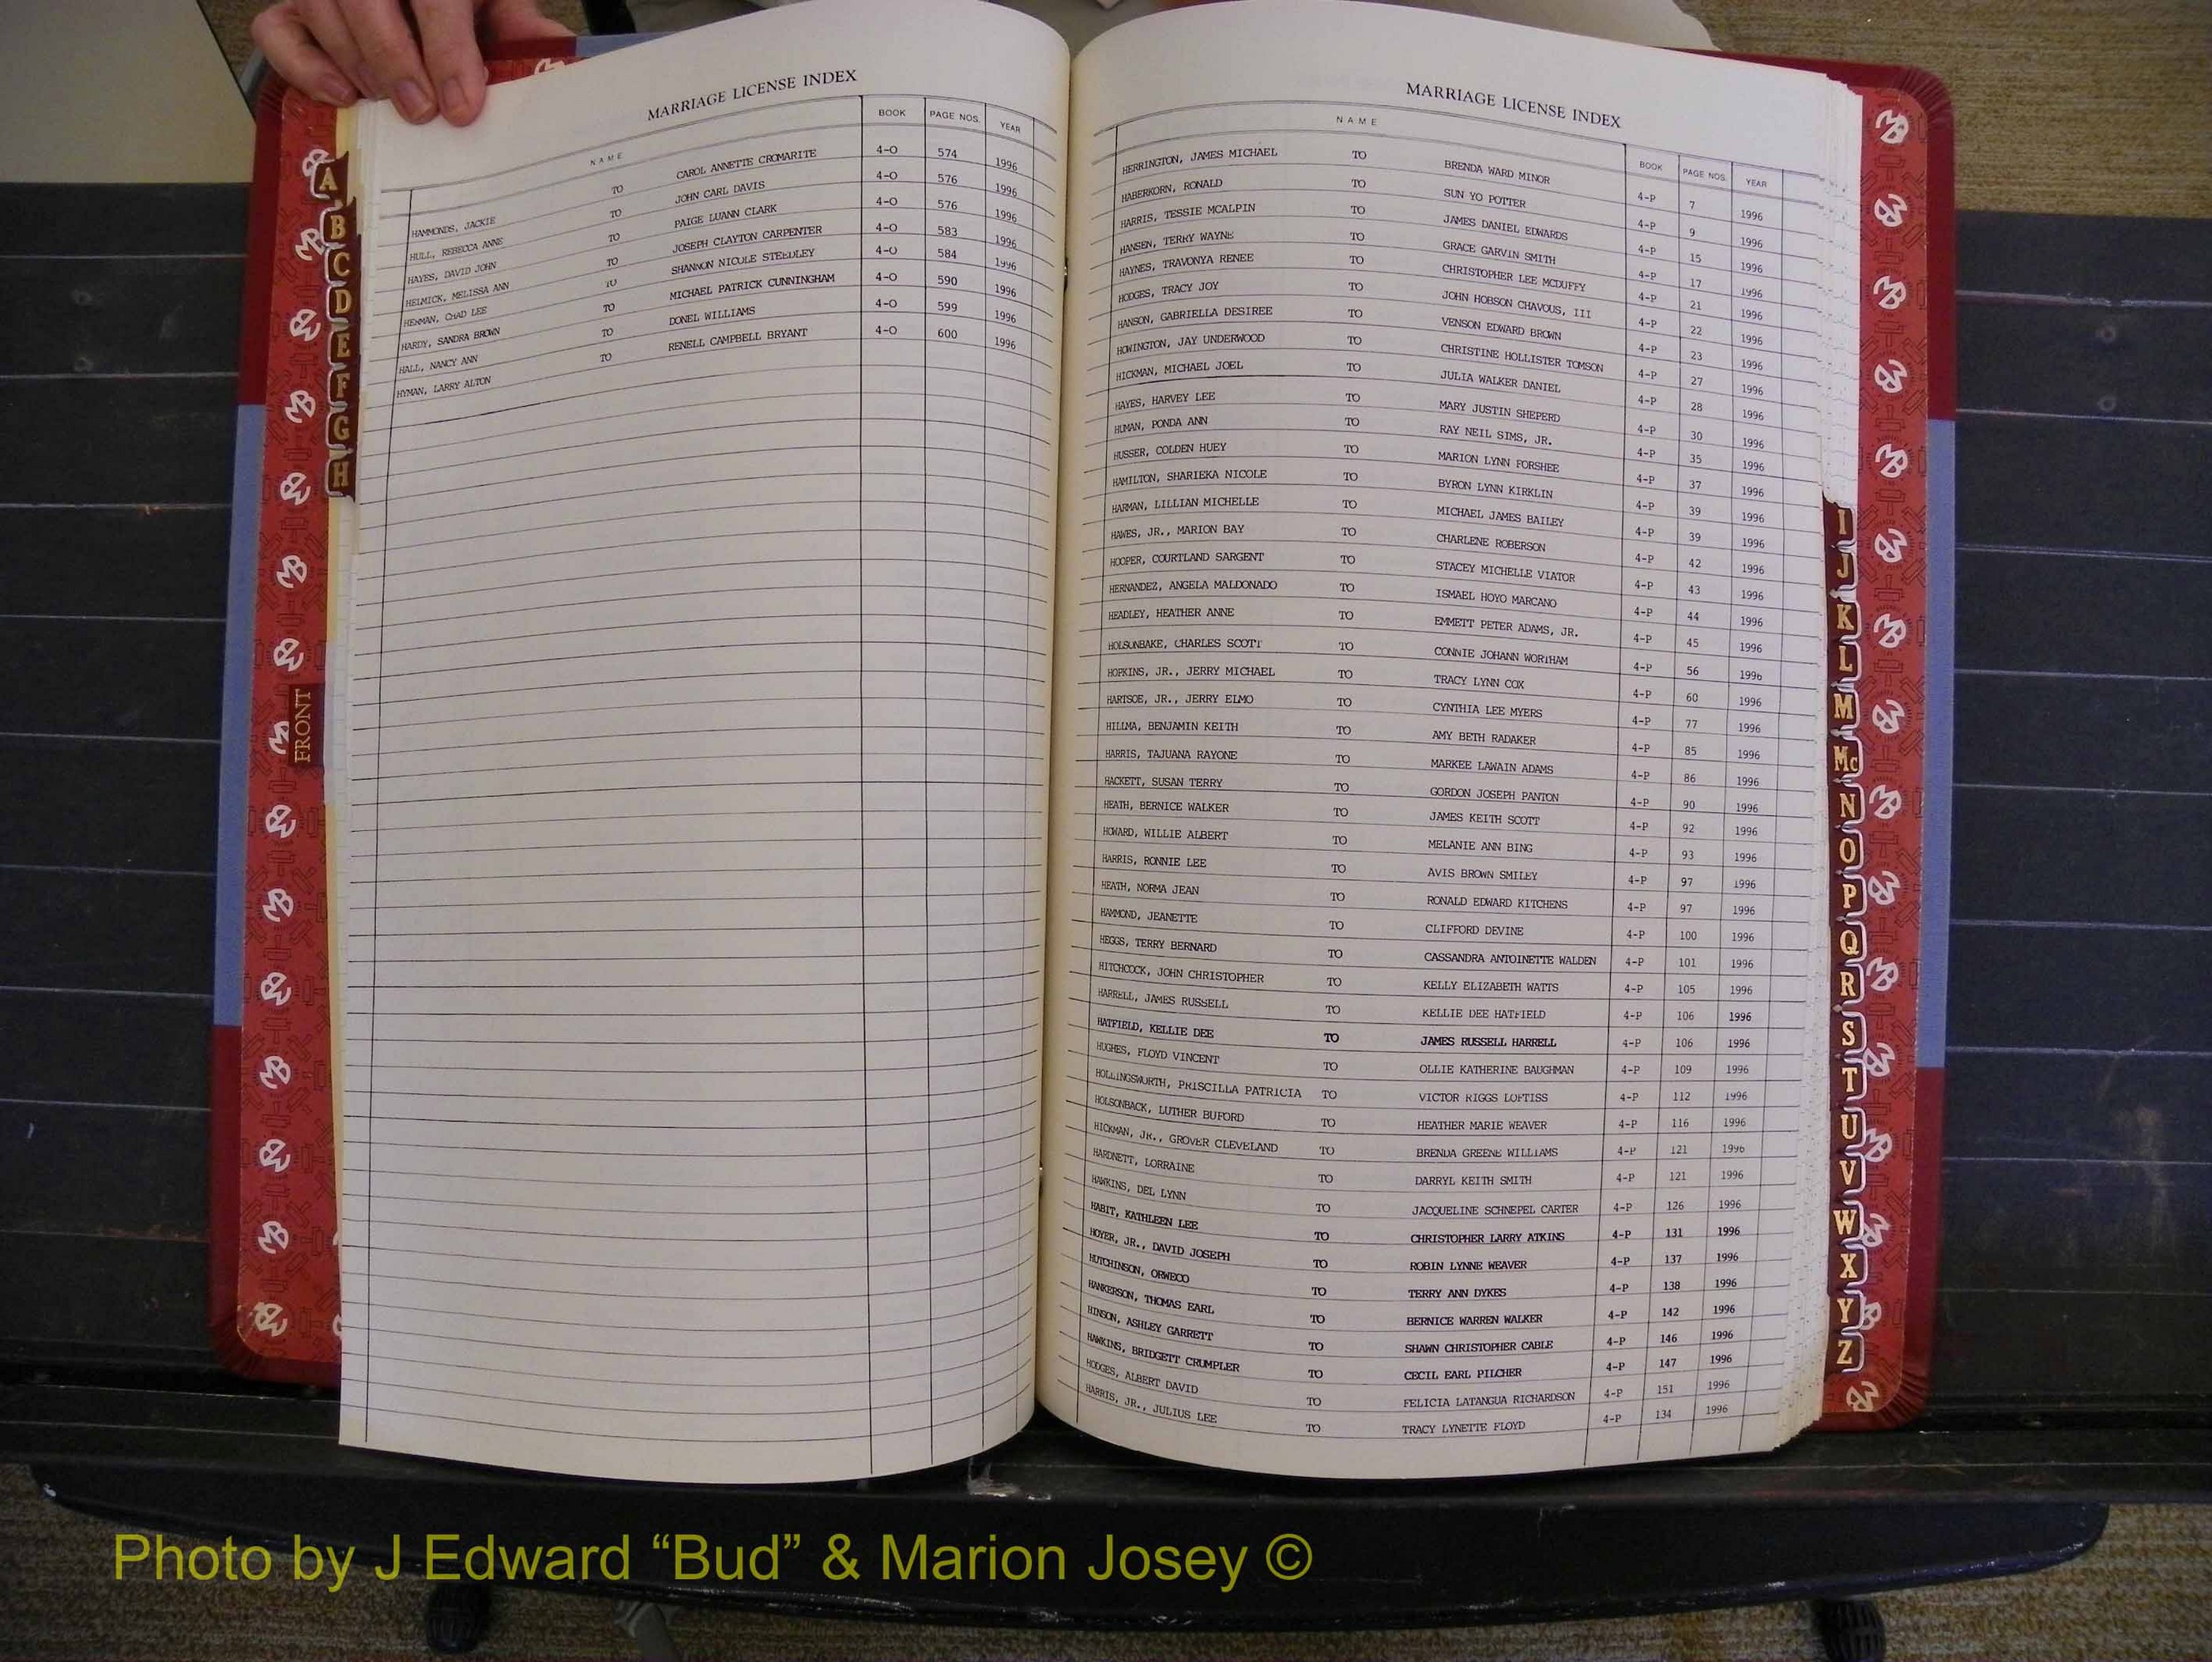 MARRIAGE LICENSE INDEX
NAME BOOK PAGE NOS. YEAR
HAMMONDS, JACKIE TO CAROL ANNETTE CROMARITE 4-O 574 1996
HULL, REBECCA ANNE TO JOHN CARL DAVIS 4-O 576 1996
HAYES, DAVID JOHN TO PAIGE LUANN CLARK 4-O 576 1996
HELMICK, MELISSA ANN TO JOSEPH CLAYTON CARPENTER 4-O 583 1996
HEHMAN, CHAD LEE TO SHANNON NICOLE STEEDLEY 4-O 584 1996
HARDY, SANDRA BROWN TO MICHAEL PATRICK CUNNINGHAM 4-O 590 1996
HALL, NANCY ANN TO DONEL WILLIAMS 4-O 599 1996
HYMAN, LARRY ALTON TO RENELL CAMPBELL BRYANT 4-O 600 1996
MARRIAGE LICENSE INDEX
NAME BOOK PAGE NOS. YEAR
HERRINGTON, JAMES MICHAEL TO BRENDA WARD MINOR 4-P 7 1996
HABERKORN, RONALD TO SUN YO POTTER 4-P 9 1996
HARRIS, TESSIE MCALPIN TO JAMES DANIEL EDWARDS 4-P 15 1996
HANSEN, TERRY WAYNE TO GRACE GARVIN SMITH 4-P 17 1996
HAYNES, TRAVONYA RENEE TO CHRISTOPHER LEE MCDUFFY 4-P 21 1996
HODGES, TRACY JOY TO JOHN HOBSON CHAVOUS, III 4-P 22 1996
HANSON, GABRIELLA DESIREE TO VENSON EDWARD BROWN 4-P 23 1996
HOWINGTON, JAY UNDERWOOD TO CHRISTINE HOLLISTER TOMSON 4-P 27 1996
HICKMAN, MICHAEL JOEL TO JULIA WALKER DANIEL 4-P 28 1996
HAYES, HARVEY LEE TO MARY JUSTIN SHEPERD 4-P 30 1996
HUMAN, PONDA ANN TO RAY NEIL SIMS, JR. 4-P 35 1996
HUSSER, COLDEN HUEY TO MARION LYNN FORSHEE 4-P 37 1996
HAMILTON, SHARIEKA NICOLE TO BYRON LYNN KIRKLIN 4-P 39 1996
HARMAN, LILLIAN MICHELLE TO MICHAEL JAMES BAILEY 4-P 39 1996
HAWES, JR., MARION BAY TO CHARLENE ROBERSON 4-P 42 1996
HOOPER, COURTLAND SARGENT TO STACEY MICHELLE VIATOR 4-P 43 1996
HERNANDEZ, ANGELA MALDONADO TO ISMAEL HOYO MARCANO 4-P 44 1996
HEADLEY, HEATHER ANNE TO EMMETT PETER ADAMS, JR. 4-P 45 1996
HOLSONBAKE, CHARLES SCOTT TO CONNIE JOHANN WORTHAM 4-P 56 1996
HOPKINS, JR., JERRY MICHAEL TO TRACY LYNN COX 4-P 60 1996
HARTSOE, JR., JERRY ELMO TO CYNTHIA LEE MYERS 4-P 77 1996
HILLMA, BENJAMIN KEITH TO AMY BETH RADAKER 4-P 85 1996
HARRIS, TAJUANA RAYONE TO MARKEE LAWAIN ADAMS 4-P 86 1996
HACKETT, SUSAN TERRY TO GORDON JOSEPH PANTON 4-P 90 1996
HEATH, BERNICE WALKER TO JAMES KEITH SCOTT 4-P 92 1996
HOWARD, WILLIE ALBERT TO MELANIE ANN BING 4-P 93 1996
HARRIS, RONNIE LEE TO AVIS BROWN SMILEY 4-P 97 1996
HEATH, NORMA JEAN TO RONALD EDWARD KITCHENS 4-P 97 1996
HAMMOND, JEANETTE TO CLIFFORD DEVINE 4-P 100 1996
HEGGS, TERRY BERNARD TO CASSANDRA ANTOINETTE WALDEN 4-P 101 1996
HITCHCOCK, JOHN CHRISTOPHER TO KELLY ELIZABETH WATTS 4-P 105 1996
HARRELL, JAMES RUSSELL TO KELLIE DEE HATFIELD 4-P 106 1996
HATFIELD, KELLIE DEE TO JAMES RUSSELL HARRELL 4-P 106 1996
HUGHES, FLOYD VINCENT TO OLLIE KATHERINE BAUGHMAN 4-P 109 1996
HOLLINGSWORTH, PRISCILLA PATRICIA TO VICTOR RIGGS LOFTISS 4-P 112 1996
HOLSONBACK, LUTHER BUFORD TO HEATHER MARIE WEAVER 4-P 116 1996
HICKMAN, JR., GROVER CLEVELAND TO BRENDA GREENE WILLIAMS 4-P 121 1996
HARDNETT, LORRAINE TO DARRYL KEITH SMITH 4-P 121 1996
HAWKINS, DEL LYNN TO JACQUELINE SCHNEPEL CARTER 4-P 126 1996
HABIT, KATHLEEN LEE TO CHRISTOPHER LARRY ATKINS 4-P 131 1996
HOYER, JR., DAVID JOSEPH TO ROBIN LYNNE WEAVER 4-P 137 1996
HUTCHINSON, ORWECO TO TERRY ANN DYKES 4-P 138 1996
HANKERSON, THOMAS EARL TO BERNICE WARREN WALKER 4-P 142 1996
HINSON, ASHLEY GARRETT TO SHAWN CHRISTOPHER CABLE 4-P 146 1996
HAWKINS, BRIDGETT CRUMPLER TO CECIL EARL PILCHER 4-P 147 1996
HODGES, ALBERT DAVID TO FELICIA LATANGUA RICHARDSON 4-P 151 1996
HARRIS, JR., JULIUS LEE TO TRACY LYNETTE FLOYD 4-P 134 1996
A
B
C
D
E
F
G
H
FRONT
I
J
K
L
M
Mc
N
O
P
Q
R
S
T
U
V
W
X
Y
Z
Photo by J Edward “Bud” & Marion Josey ©